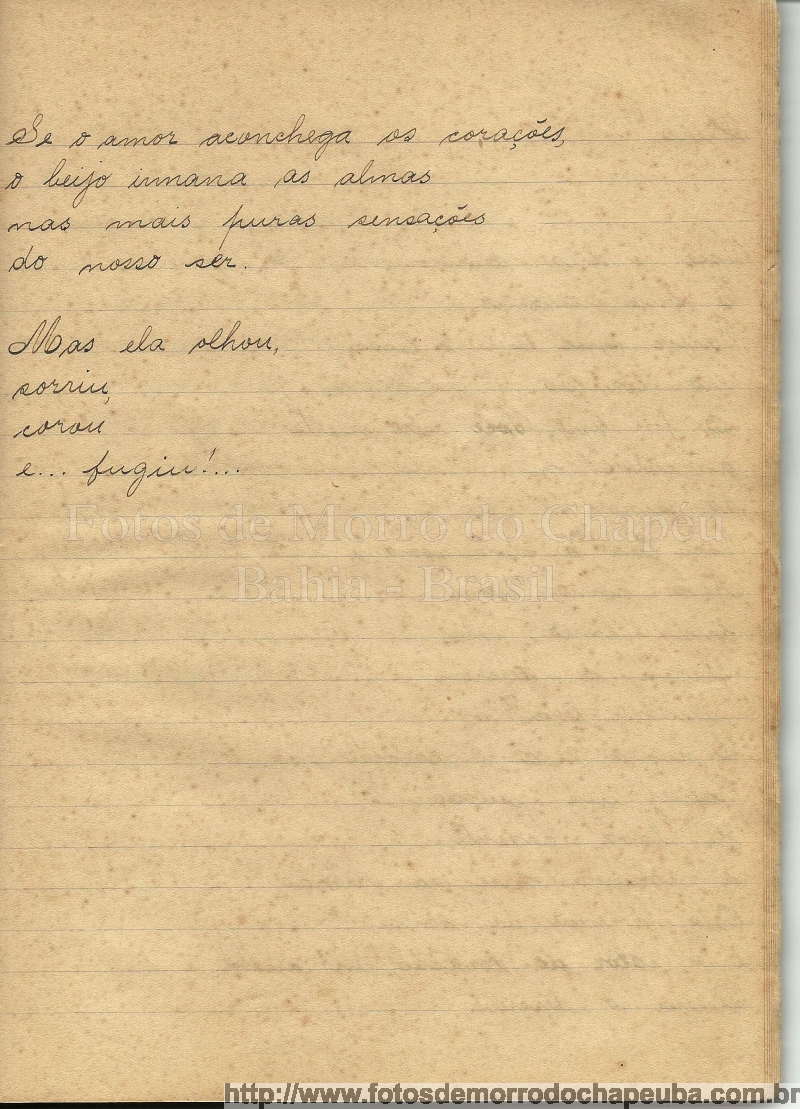 Se o amor aconchega os corações,
o beijo irmana as almas
nas mais puras sensações
do nosso sêr.
Mas ela olhou,
sorriu,
corou
e... fugiu!...
Fotos de Morro do Chapéu
Bahia - Brasil
http://www.fotosdemorrodochapeuba.com.br